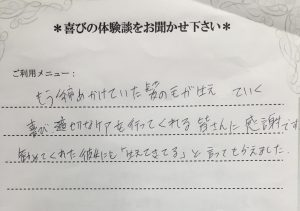 *喜びの体験談をお聞かせ下さい*
ご利用メニュー:
もう諦めかけていた髪の毛が生え ていく
喜び 適切なケアを行ってくれる 皆さんに 感謝です
勧めてくれた彼にも「生えてきてる」と言ってもらえました.